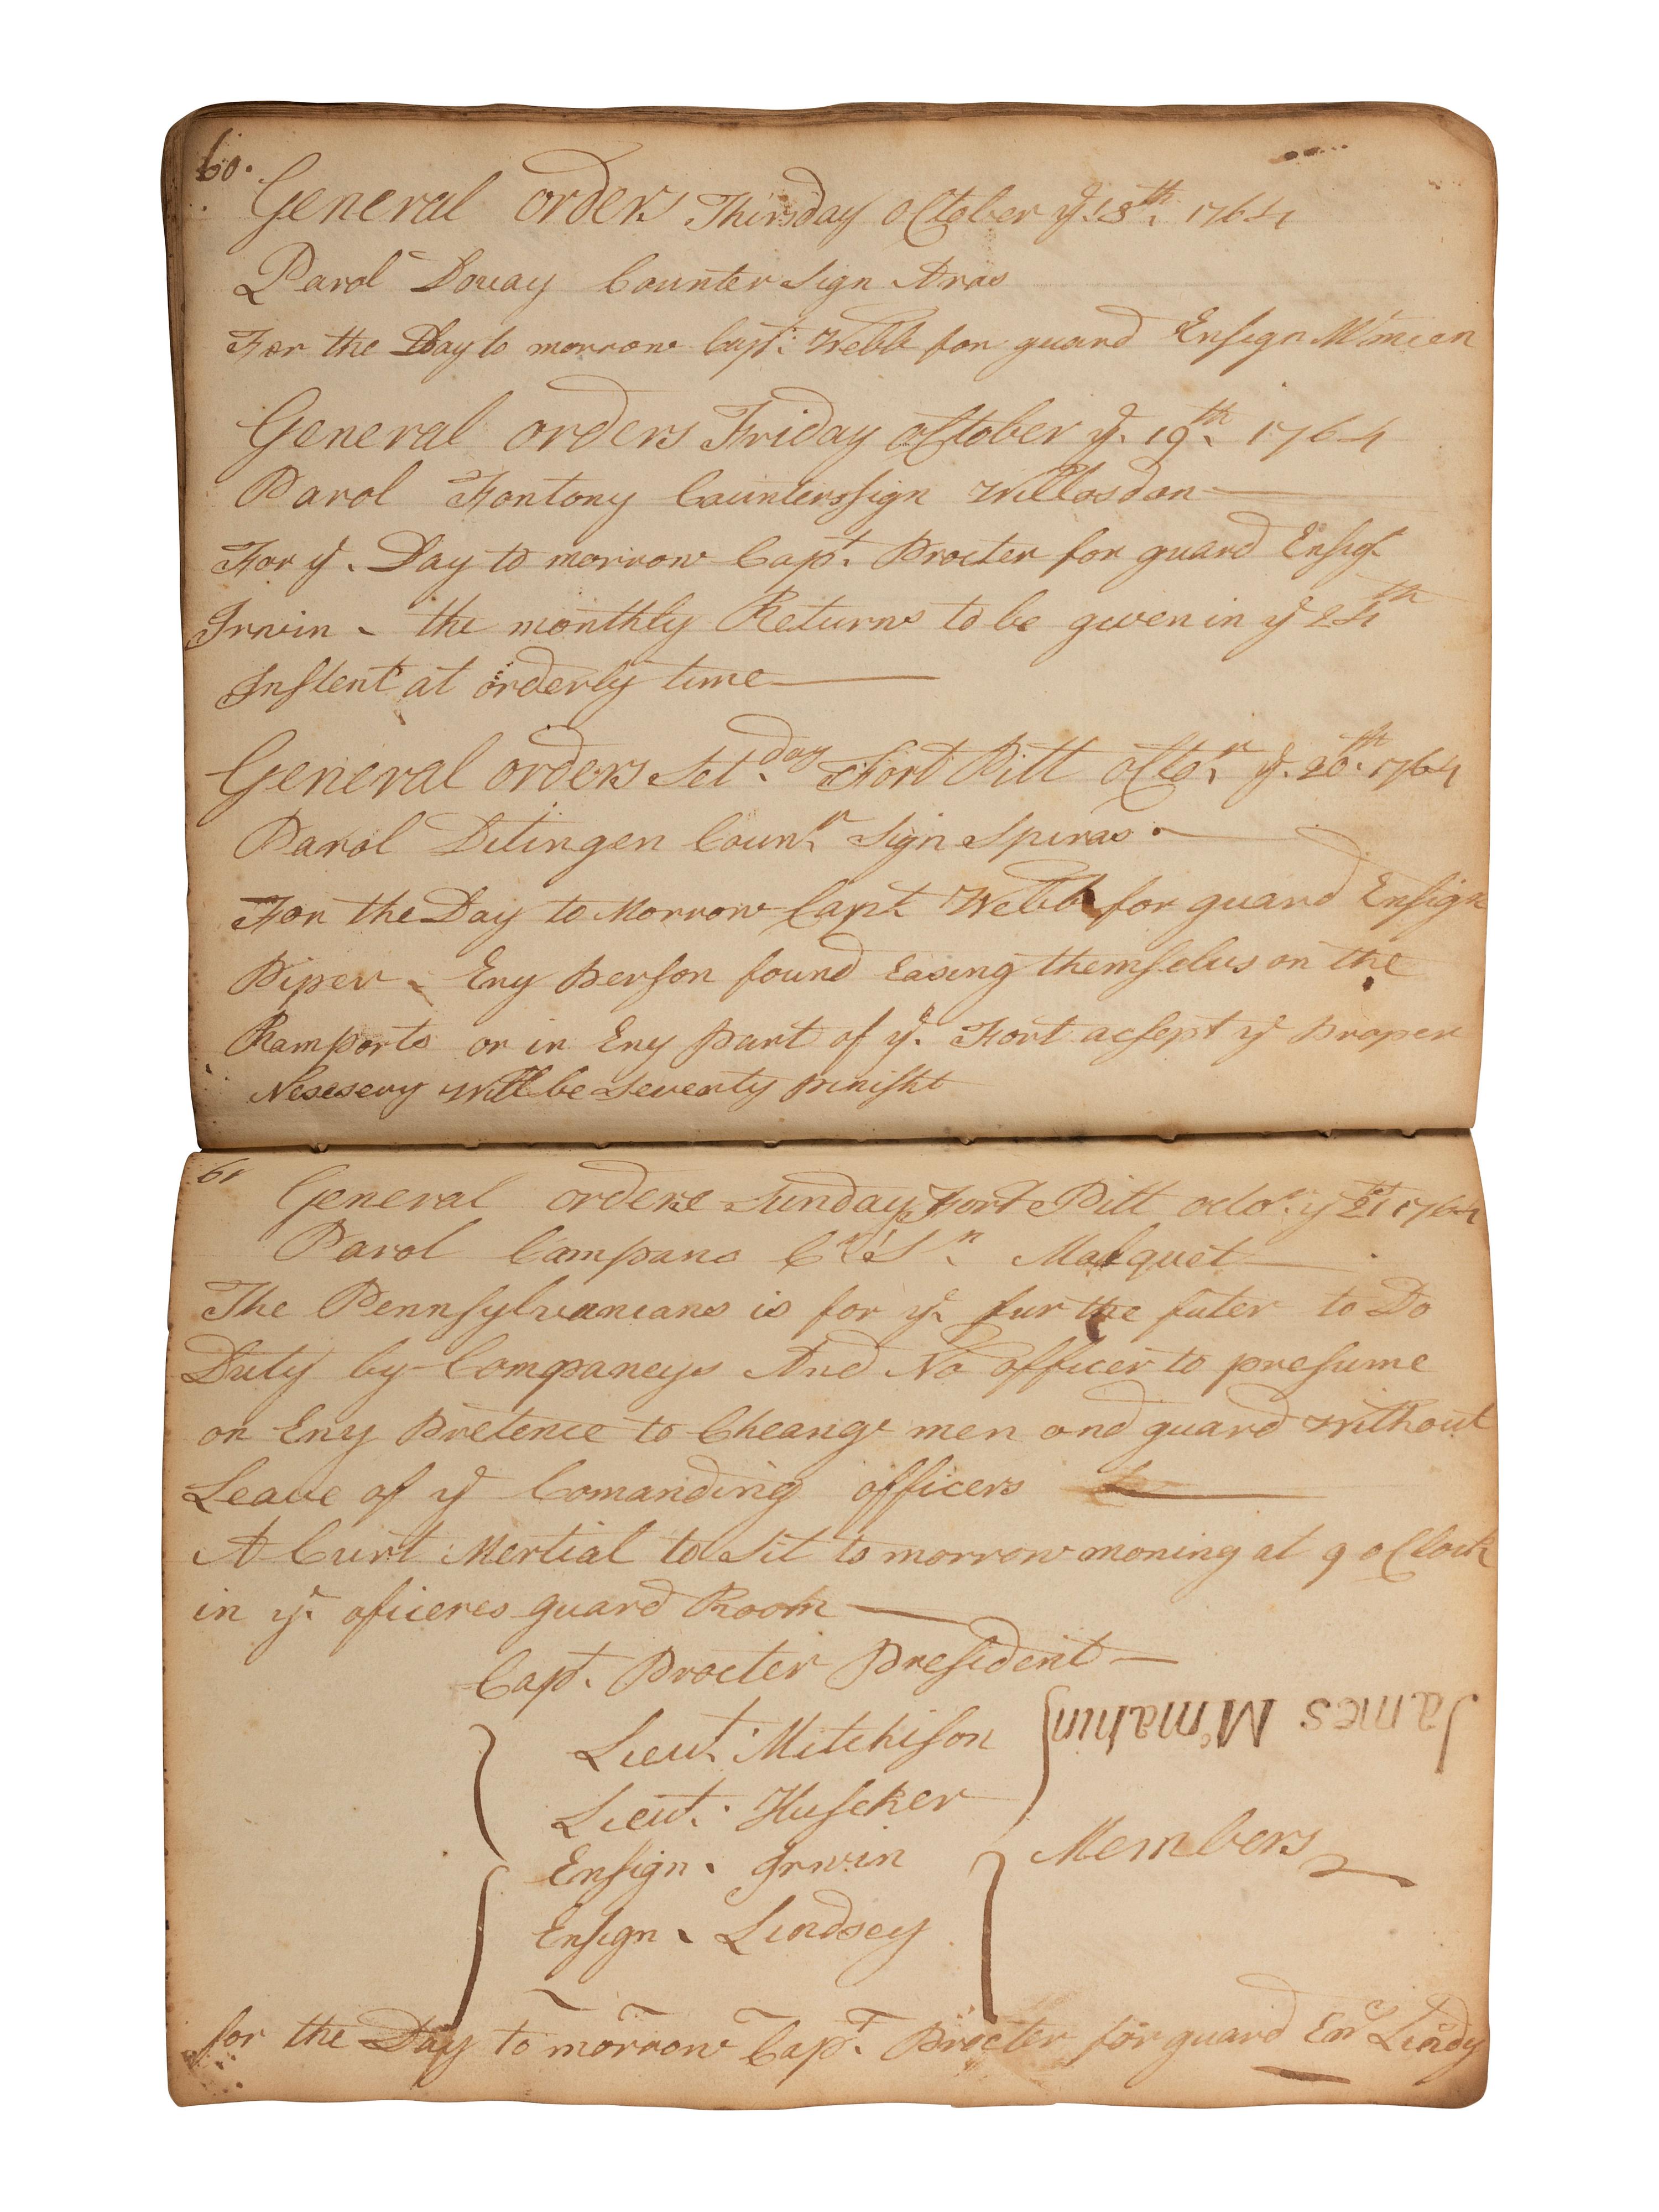 60.
General orders Thirsday October ye. 18th. 1764
Parol Douay Counter Sign Aras
For the Day to morrow Capt. Webb for guard Ensign Mcmeen
General orders Friday october ye. 19th. 1764
Parol Fontony Counterssign Willosdon
For ye. Day to morrow Capt. Procter for guard Ensign
Irwin - the monthly Returns to be given in ye 24th
Instent at orderly time
General orders Set.day Fort Pitt octor. ye. 20th. 1764
Parol Ditingen Counr. Sign Spiras.
For the Day to Morrow Capt. Webb for guard Ensign
Piper - Eny Person found Easing themselvs on the
Ramports or in Eny Part of ye. Fort acsept ye Proper
Nesesery Will be Severly Punisht
61
General orders Sunday Fort Pitt octor. ye 21st 1764
Parol Campano Cr. Sn. Malquet
The Pennsylvanians is for ye. fur the futer to Do
Duty by Companeys And No officer to presume
on Eny Pretence to Cheange men ond guard Without
Leave of ye Comanding officers
A Curt Mertial to Sit to morrow moning at 9 oClock
in ye. oficeres guard Room
Capt. Procter President
James Mcmahin
Lieut. Mitchison
Lieut. Huseker
Ensign. Irwin
Members
Ensign. Lindsey
for the Day to morrow Capt. Procter for guard Enn Lindy